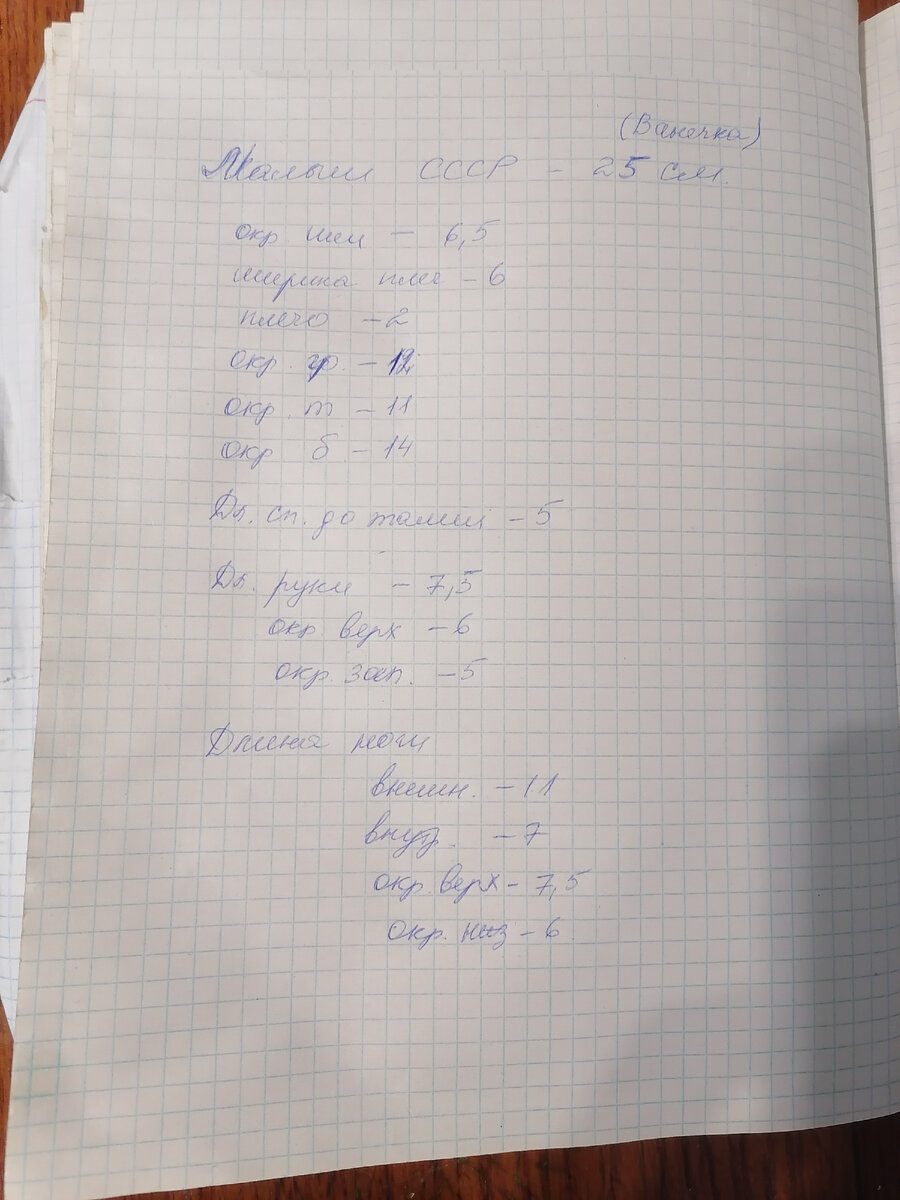 (Ванечка)
Малыш СССР - 25 см.
окр шеи - 6,5
ширина плеч - 6
плечо - 2
окр. гр. - 12
окр. т - 11
окр б - 14
Дл. сп. до талии - 5
Дл. руки - 7,5
окр. верх - 6
окр. зап. - 5
Длина ноги
внешн. - 11
внутр. - 7
окр. верх - 7,5
окр. низ - 6